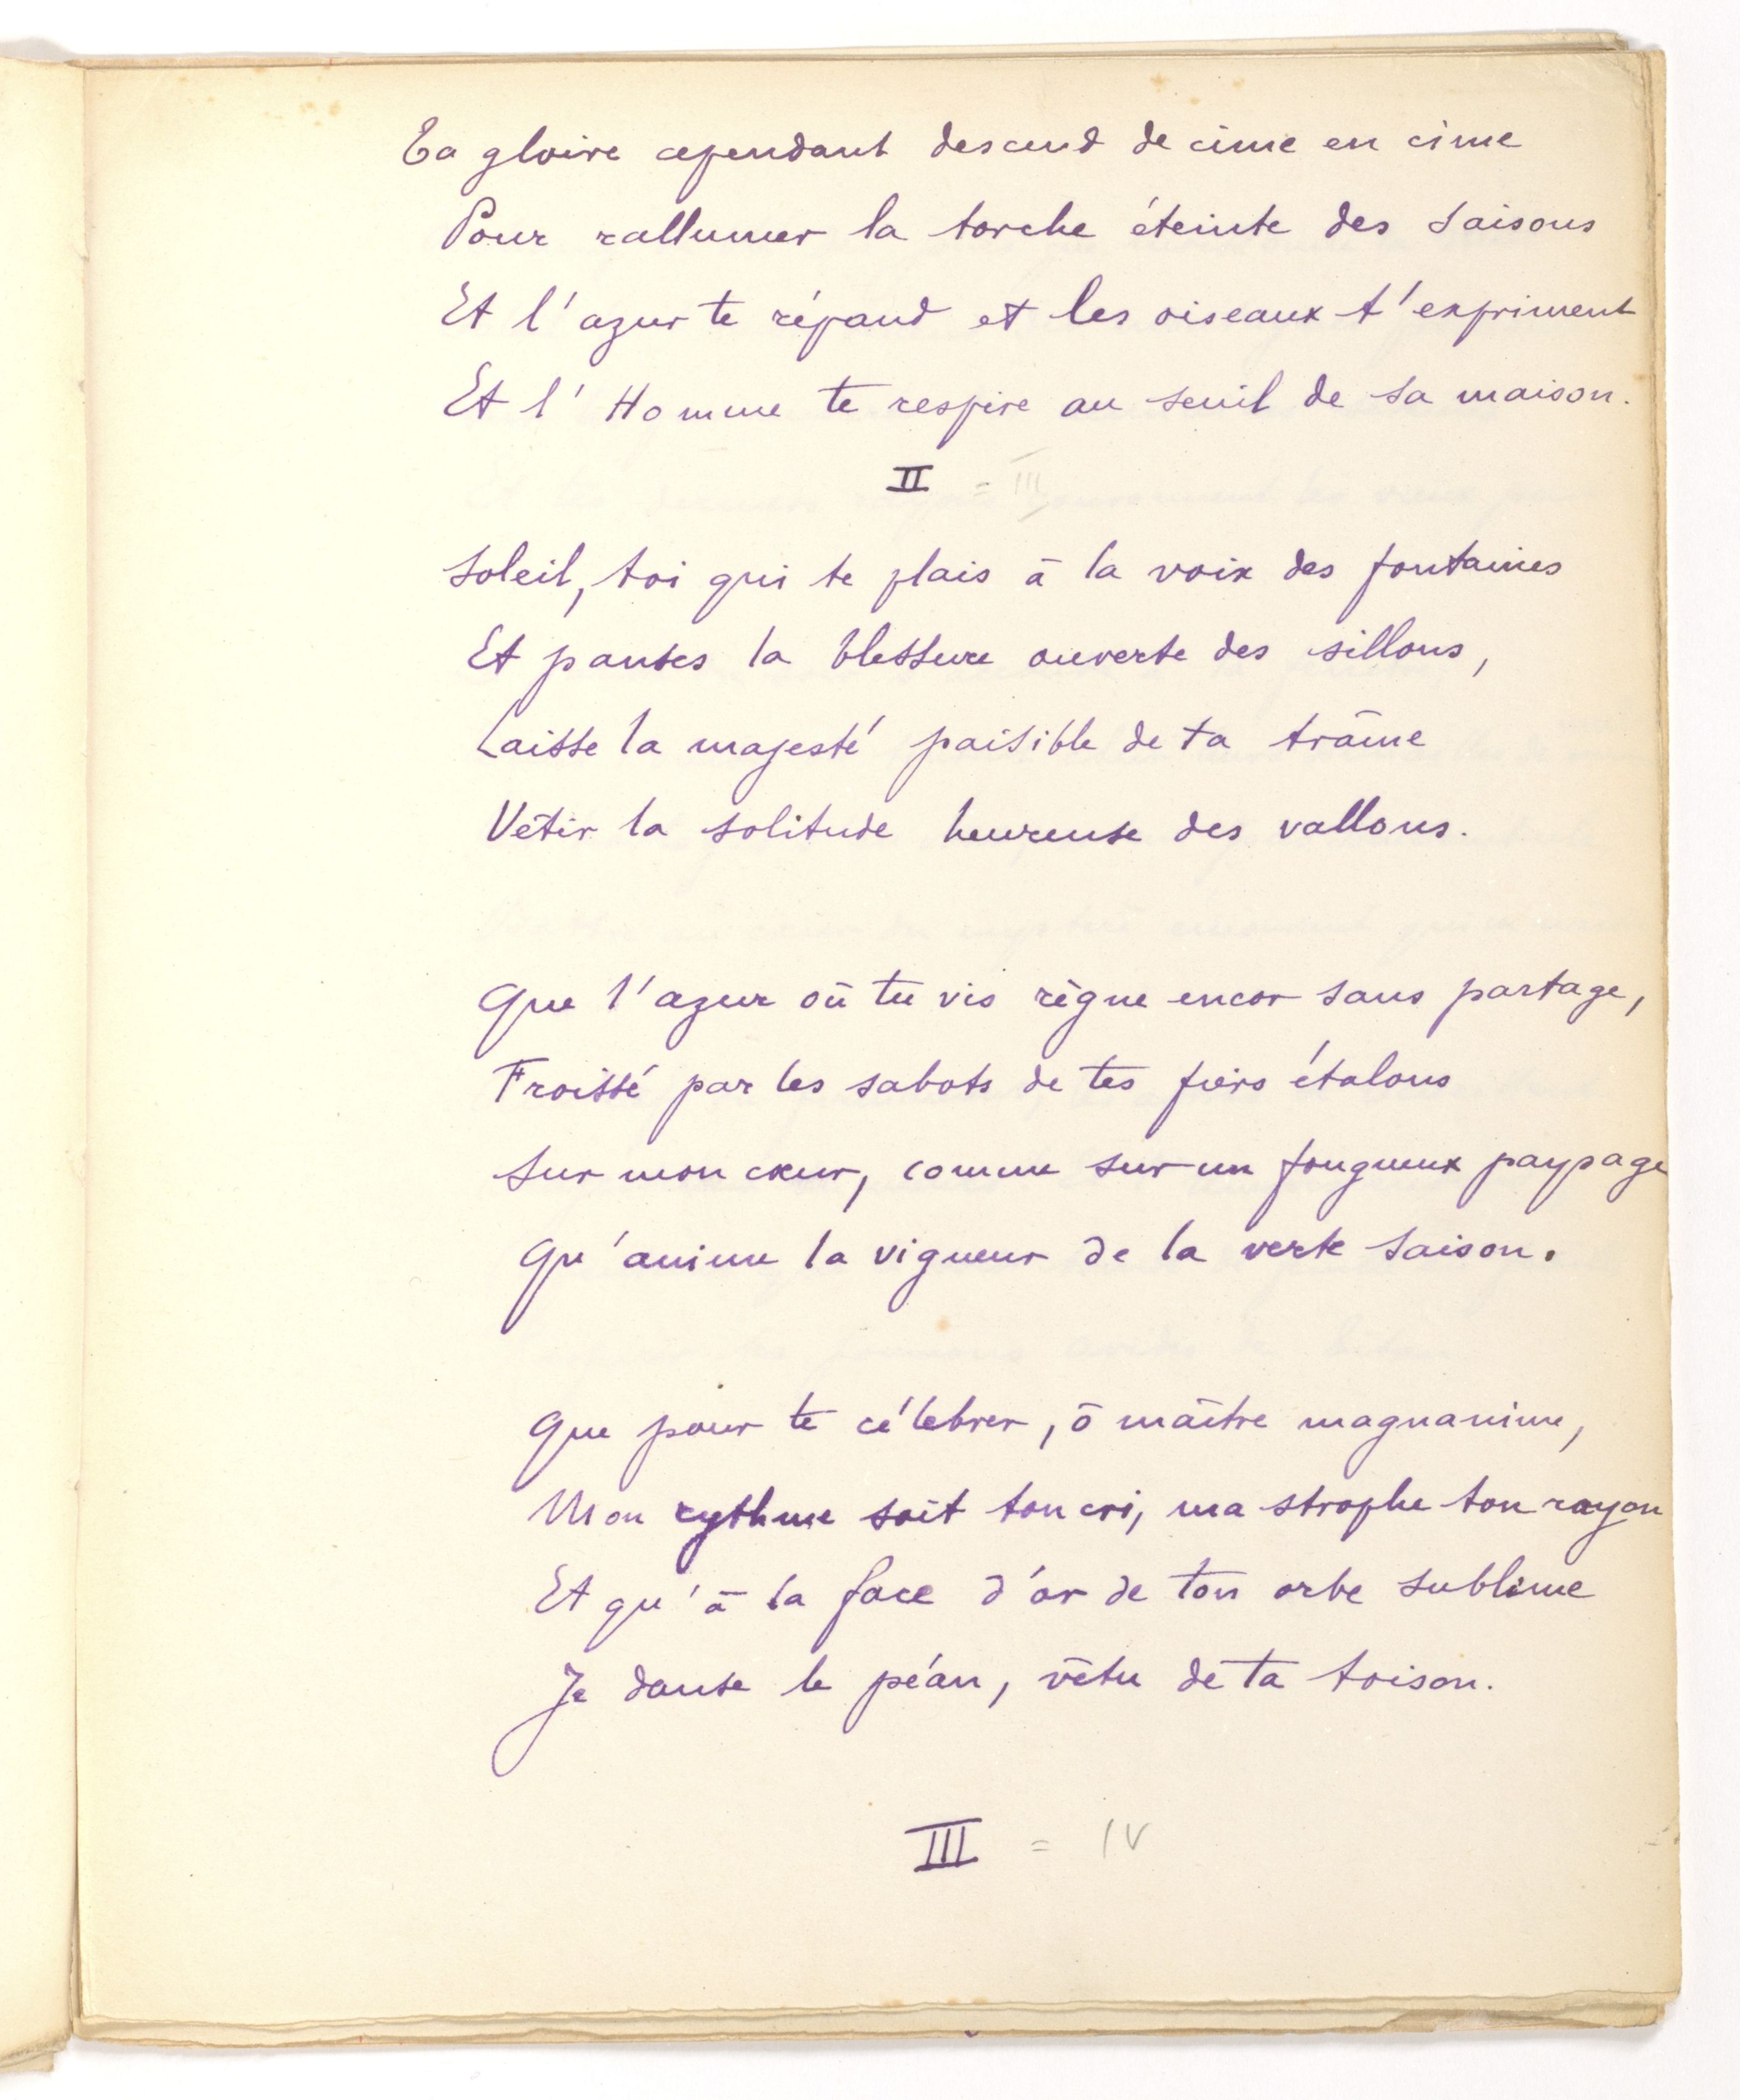 Ta gloire cependant descend de cime en cime
Pour rallumer la torche éteinte des saisons
Et l'azur te répand et les oiseaux t'expriment
Et l'Homme te respire au seuil de sa maison.
II = III
Soleil, toi qui te plais à la voix des fontaines
Et panses la blessure ouverte des sillons,
Laisse la majesté paisible de ta traîne
Vêtir la solitude heureuse des vallons.
Que l'azur où tu vis règne encor sans partage,
Froissé par les sabots de tes fiers étalons
Sur mon cœur, comme sur un fougueux paysage
Qu'anime la vigueur de la verte saison.
Que pour te célébrer, ô maître magnanime,
Mon rythme soit ton cri, ma strophe ton rayon
Et qu'à la face d'or de ton orbe sublime
Je danse le péan, vêtu de ta toison.
III = IV